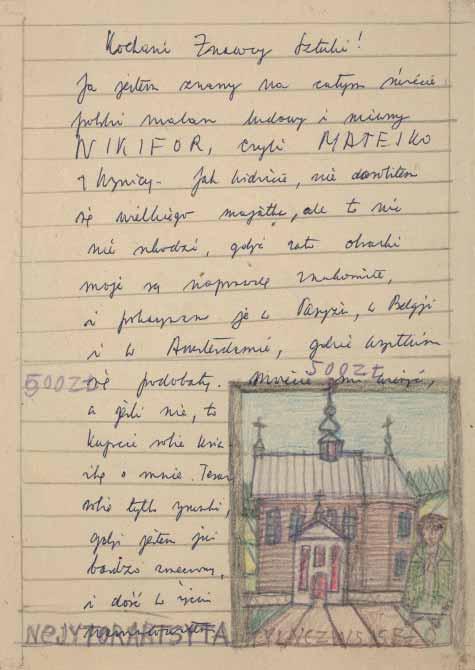 Kochani Znawcy Sztuki!
Ja jestem znany na całym świecie
polski malarz ludowy i niemy
NIKIFOR, czyli MATEJKO
z Krynicy. Jak widzicie, nie dorobiłem
się wielkiego majątku, ale to nic
nie szkodzi, gdyż za to obrazki
moje są naprawdę znakomite,
i pokazywano je w Paryżu, w Belgji
i w Amsterdamie, gdzie wszystkim
500ZŁ się podobały. Możecie mi wierzyć,
500ZŁ
a jeśli nie, to
kupcie sobie książ-
kę o mnie. Teraz
sobie tylko rysuję,
gdyż jestem już
bardzo znany,
i dość w życiu
NEJYTORARTSYTA